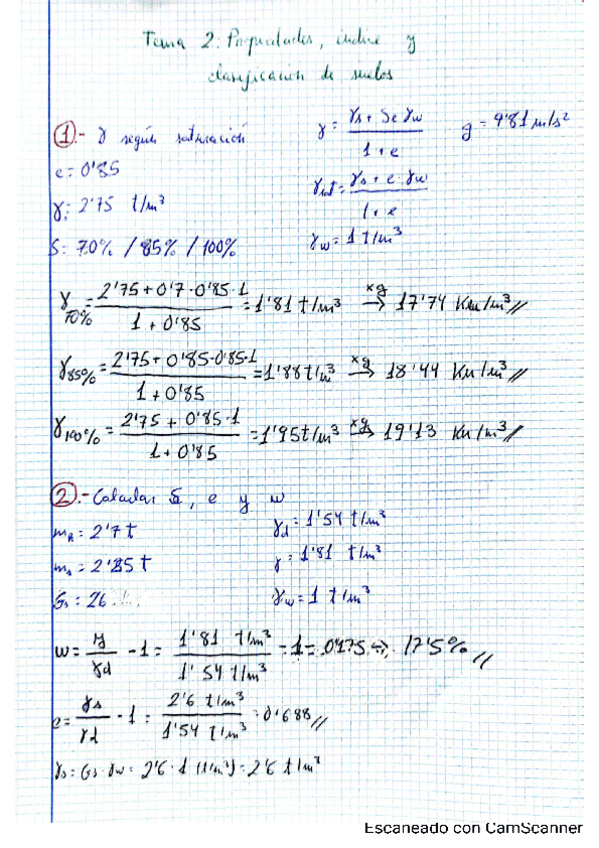 Tema 2: Propiedades, índice y
clasificación de suelos
1.- γ según saturación
γ = γs + S e γw / 1 + e
g = 9'81 m/s²
e = 0'85
γsat = γs + e · γw / 1 + e
γs = 2'75 t/m³
γw = 1 t/m³
S: 70% / 85% / 100%
γ70% = 2'75 + 0'7 · 0'85 · 1 / 1 + 0'85 = 1'81 t/m³ →xg 17'74 Kn/m³ //
γ85% = 2'75 + 0'85 · 0'85 · 1 / 1 + 0'85 = 1'88 t/m³ →xg 18'44 Kn/m³ //
γ100% = 2'75 + 0'85 · 1 / 1 + 0'85 = 1'95 t/m³ →xg 19'13 Kn/m³ //
2.- Calcular S, e y w
γd = 1'54 t/m³
: 2'7 t
γ = 1'81 t/m³
: 2'85 t
Gs : 26
γw = 1 t/m³
w = γ / γd - 1 = 1'81 t/m³ / 1'54 t/m³ - 1 = 0'175 → 17'5% //
e = γs / γd - 1 = 2'6 t/m³ / 1'54 t/m³ = 0'688 //
γs = Gs · γw = 2'6 · 1 (t/m³) = 2'6 t/m³
Escaneado con CamScanner